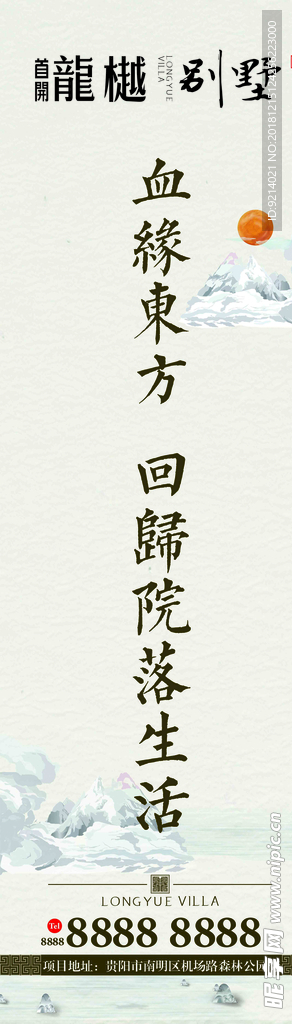 首開
龍樾
LONGYUE
VILLA
别墅
血緣東方 回歸院落生活
LONGYUE VILLA
Tel
8888
8888 8888
项目地址：贵阳市南明区机场路森林公园
ID:9214021 NO:20181215124316223000
昵享网 www.nipic.cn